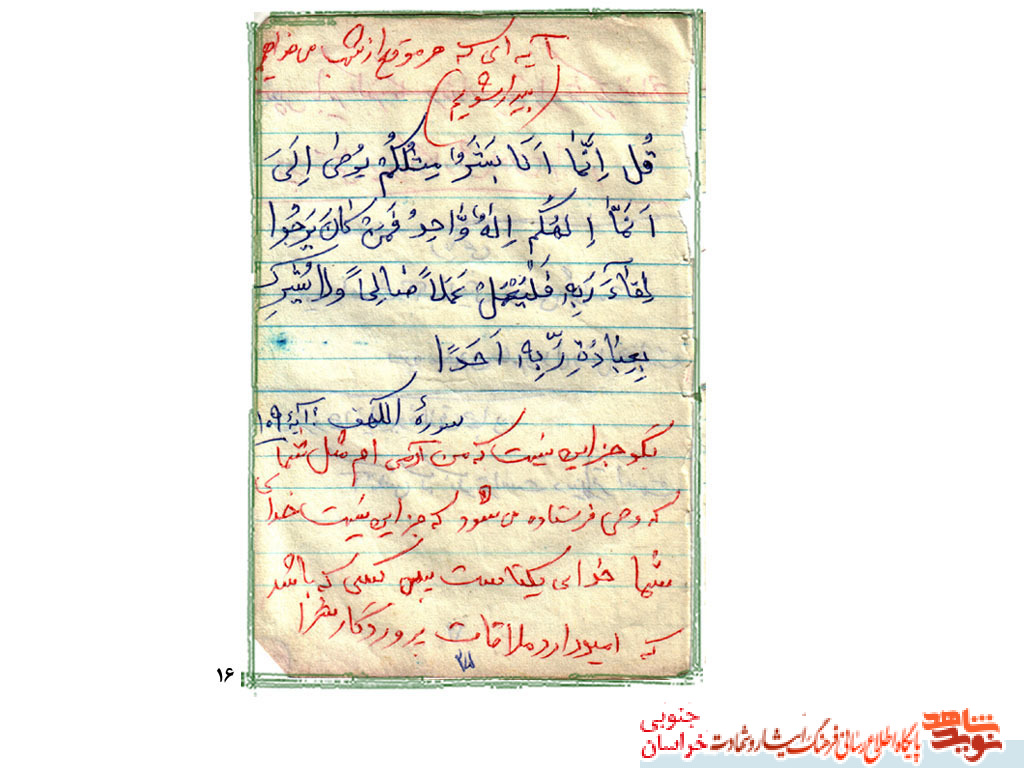 آیه ای که هر موقع از شب می خواهیم
(بیدار شویم)
قُل اِنَّمٰا اَنَا بَشَرٌ مِثْلُکُمْ یُوحیٰ اِلَیَ
اَنَمّٰا اِلٰهُکُم اِلٰهٌ وّٰاحِدٌ فَمَنْ کٰانَ یَرجُوا
لِقٰآءَ رَبِهِ فَلْیَعْمَلْ عَمَلاً صٰالِحاً ولا یُشْرِک
بِعِبٰادَةِ رَبِّهِ اَحَدًا
سورهٔ الکهف : آیهٔ ۱۰۹
بگو جز این نیست که من آدمی ام مثل شما
که وحی فرستاده می شود که جز این نیست خدای
شما خدای یکتاست پس کسی که باشد
که امیدوارد ملاقات پروردگارش را
۱۶
نوید شاهد
پایگاه اطلاع رسانی فرهنگ ایثار و شهادت
جنوبی
خراسان